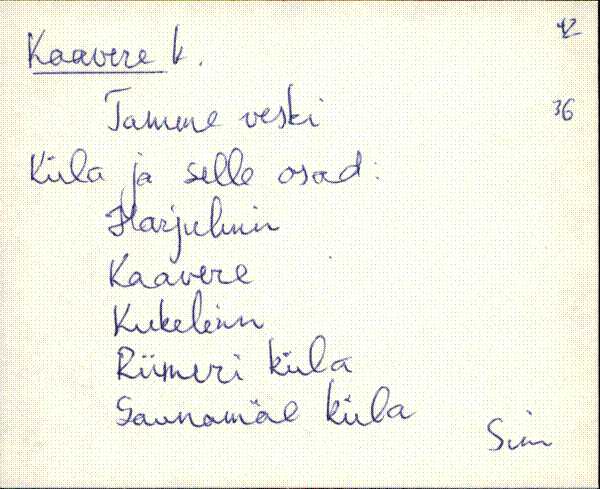 42
Kaavere k.
Tamme veski 36
Küla ja selle osad:
Harjulinn
Kaavere
Kukelinn
Riimeri küla
Saunamäe küla
Sim